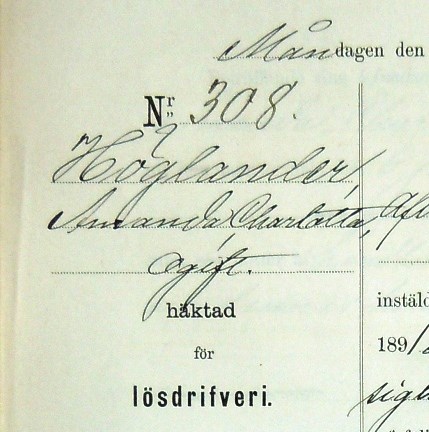 Måndagen den
Nr 308.
Höglander,
Amanda Charlotta,
ogift.
häktad
för
lösdrifveri.
instäld
189